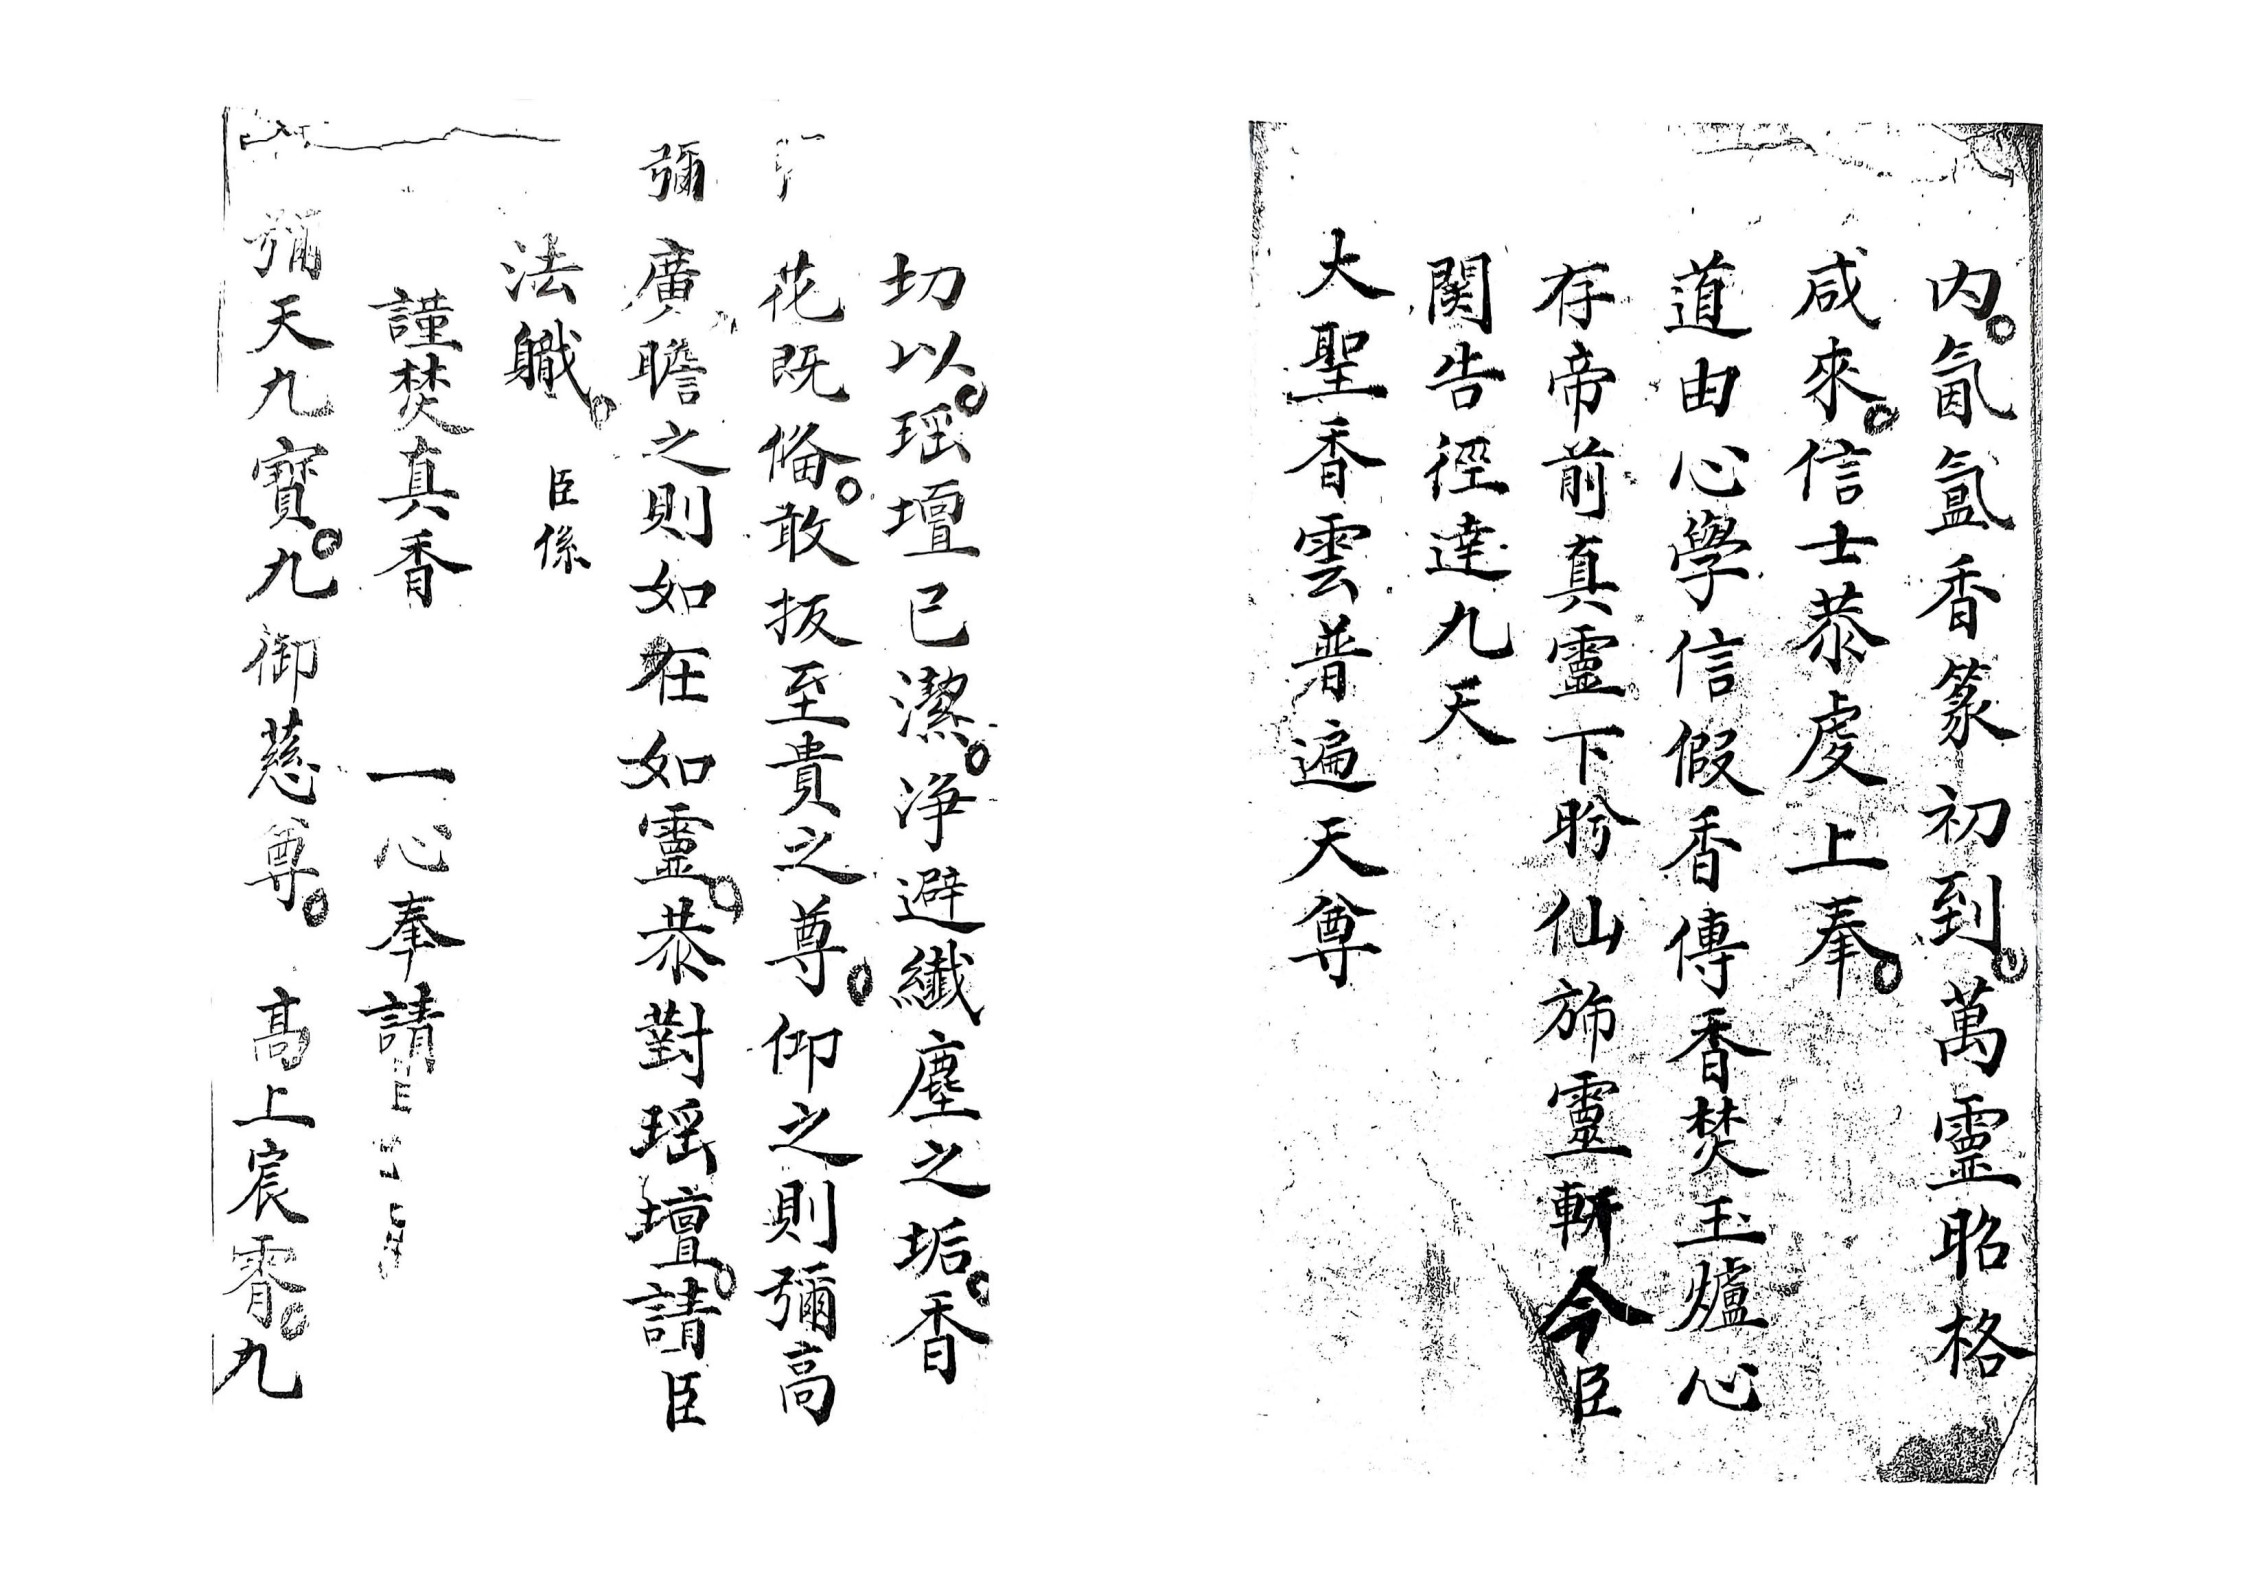 内。氤氳香篆初到。萬靈昭格
咸來。信士恭虔上奉。
道由心學信假香傳香焚玉爐心
存帝前真靈下盻仙斾靈軿今臣
関告徑達九天
大聖香雲普遍天尊
切以。瑶壇已潔。浄避纖塵之垢。香
花既俻。敢扳至貴之尊。仰之則彌高
彌
廣瞻之則如在如靈。恭對瑶壇。請臣
法軄。臣係
謹焚真香 一心奉請
彌天九寳。九御慈尊。高上宸霄。九